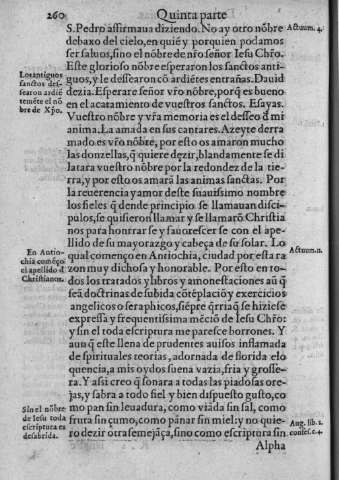 260 Quinta parte
S. Pedro affirmaua diziendo. No ay otro nõbre
debaxo del cielo, en quiẽ y porquien podamos
ser saluos, sino el nõbre de nr̃o señor Iesu Chr̃o.
Este glorioso nõbre esperaron los sanctos anti-
guos, y le dessearon cõ ardiẽtes entrañas. Dauid
dezia. Esperare señor vr̃o nõbre, porq̃ es bueno
en el acatamiento de vuestros sanctos. Esayas.
Vuestro nõbre y vr̃a memoria es el desseo d̃ mi
anima. La amada en sus cantares. Azeyte derra
mado es vr̃o nõbre, por esto os amaron mucho
las donzellas, q̃ quiere dezir, blandamente se di
latara vuestro nõbre por la redondez de la tie-
rra, y por esto os amarã las animas sanctas. Por
la reuerencia y amor deste suauissimo nombre
los fieles q̃ dende principio se llamauan disci-
pulos, se quisieron llamar y se llamarõ Christia
nos para honrrar se y fauorescer se con el ape-
llido de su mayorazgo y cabeça de su solar. Lo
qual començo en Antiochia, ciudad por esta ra
zon muy dichosa y honorable. Por esto en to-
dos los tratados y libros y amonestaciones aũ q̃
seã doctrinas de subida cõtẽplaciõ y exercicios
angelicos o seraphicos, siẽpre q̃rria q̃ se hiziese
expressa y frequentissima mẽciõ de Iesu Chr̃o:
y sin el toda escriptura me paresce borrones. Y
aun q̃ este llena de prudentes auisos inflamada
de spirituales teorias, adornada de florida elo
quencia, a mis oydos suena vazia, fria y grosse-
ra. Y assi creo q̃ sonara a todas las piadosas ore-
jas, y sabra a todo fiel y bien dispuesto gusto, co
mo pan sin leuadura, como viãda sin sal, como
fruta sin çumo, como pãnar sin miel: y no quie-
ro dezir otra semejãça, sino como escriptura sin
Alpha
Actuum. 4.
Los antiguos
sanctos des-
searon ardiẽ
temẽte el nõ
bre de Xp̃o.
En Antio-
chia comẽço
el apellido d̃
Christianos.
Actuum. 11.
Sin el nõbre
de Iesu toda
escriptura es
desabrida.
Aug. lib. 2.
confes. c. 4.